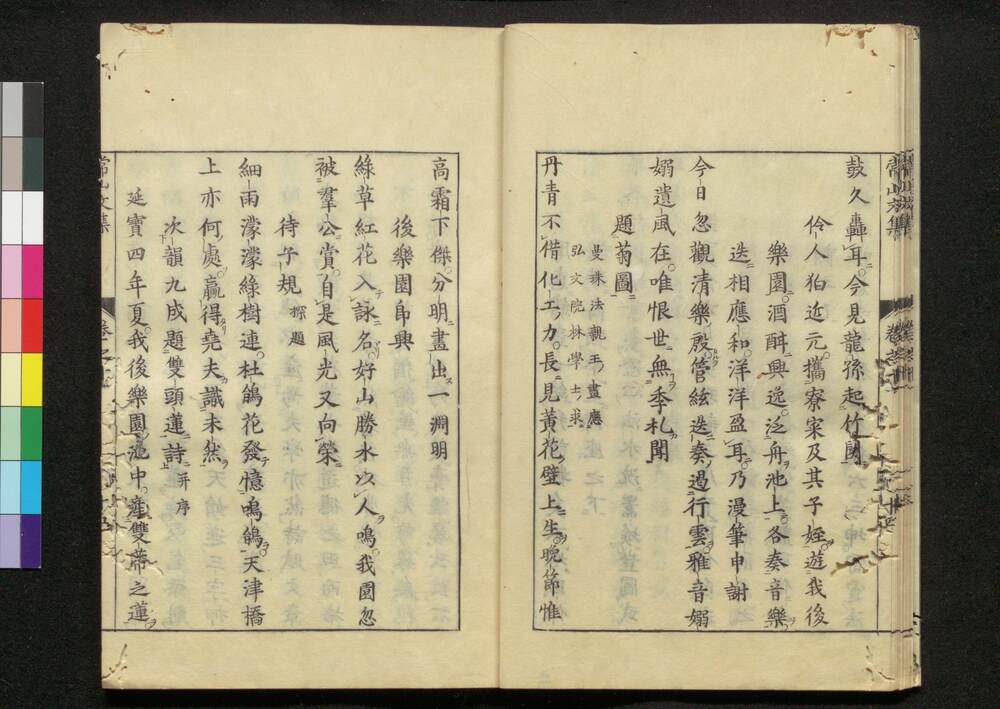 鼓久轟耳今見龍孫起竹間
伶人狛近元攜寮寀及其子姪遊我後
樂園酒酣興逸泛舟池上各奏音樂
迭相應和洋洋盈耳乃漫筆申謝
今日忽觀清樂殷管絃迭奏遏行雲雅音嫋
嫋遺風在唯恨世無季札聞
題菊圖
曼殊法親王畫應
弘文院林學士求
丹青不借化工力長見黃花壁上生晚節惟
高霜下傑分明畫出一淵明
後樂園即興
綠草紅花入詠名好山勝水以人鳴我園忽
被羣公賞自是風光又向榮
待子規 探題
細雨濛濛綠樹連杜鵑花發憶鳴鵑天津橋
上亦何處贏得堯夫識未然
次韻九成題雙頭蓮詩 并序
延寶四年夏我後樂園池中產雙蒂之蓮
常山文集